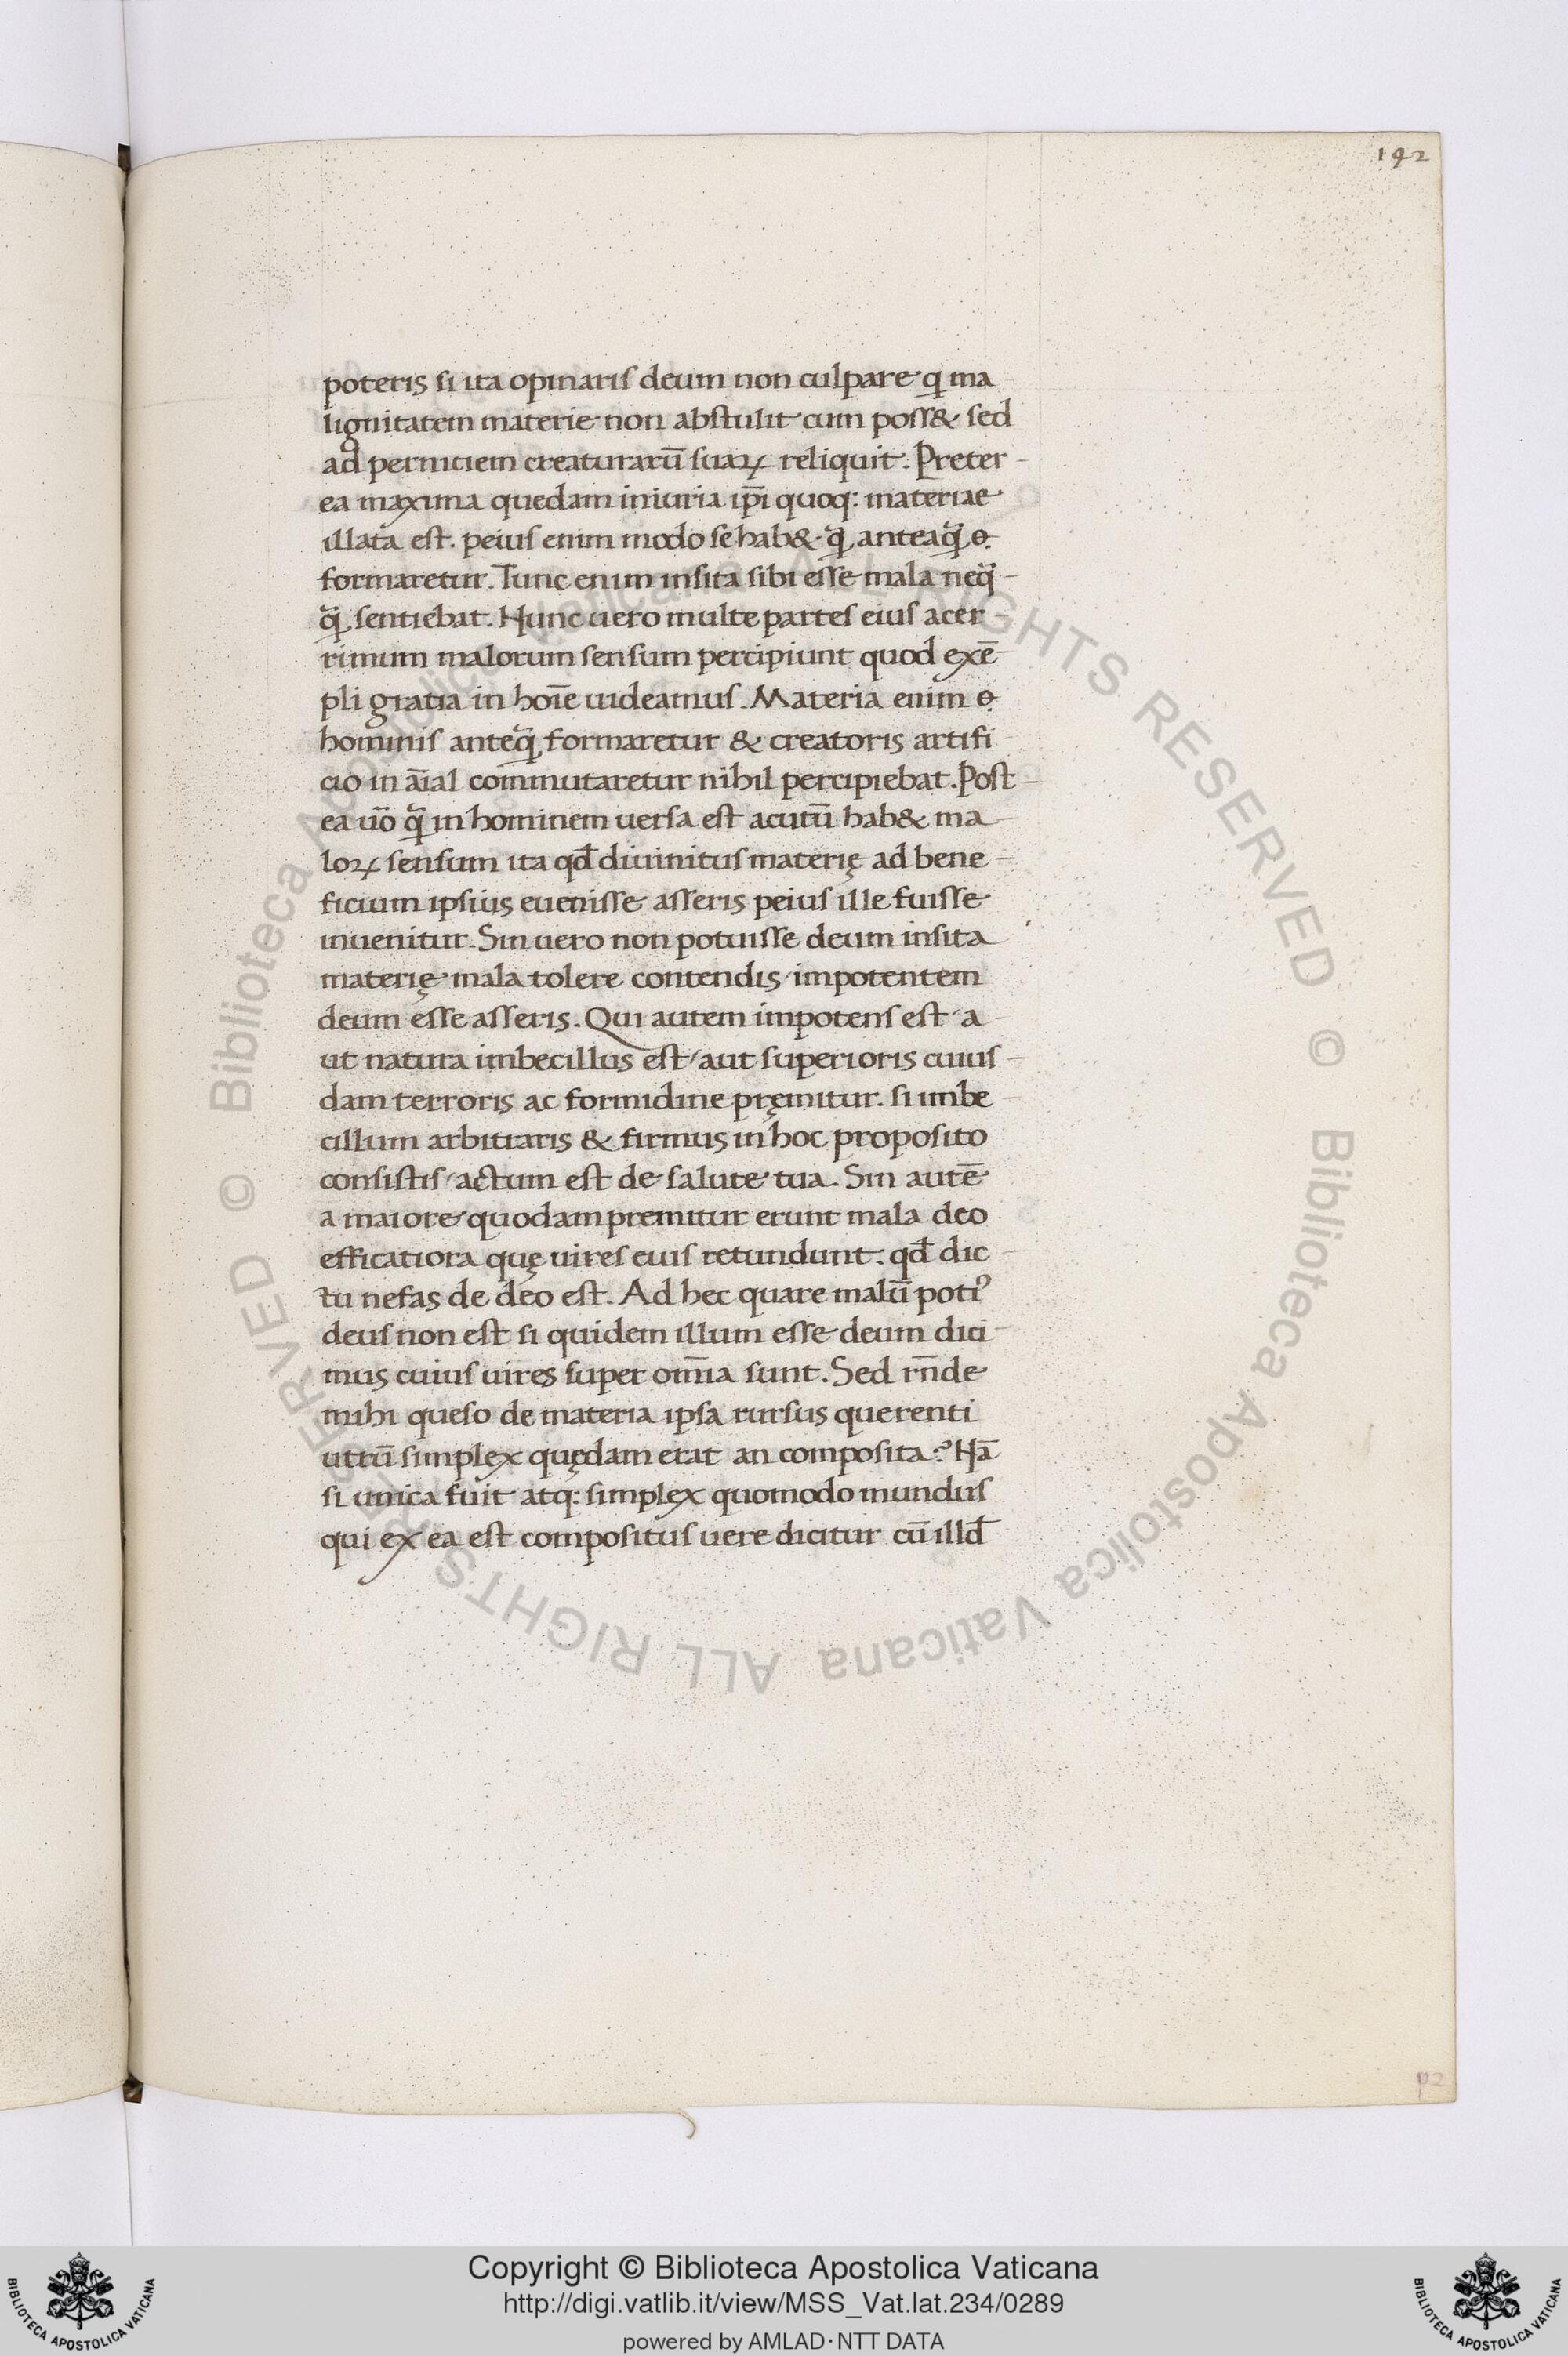 142
poteris si ita opinaris deum non culpare ꝙ ma
lignitatem materie non abstulit cum poss& sed
ad pernitiem creaturarū suaꝝ reliquit. Preter-
ea maxima quedam iniuria ip̄i quoq: materiae
illata est. peius enim modo se hab& ꝙ̃ anteaꝙ̃
formaretur. Tunc enim insita sibi esse mala neq̃-
ꝙ̃ sentiebat. Nunc uero multe partes eius acer-
rimum malorum sensum percipiunt quod exē
pli gratia in hoīe uideamus. Materia enim
hominis anteꝙ̃ formaretur & creatoris artifi
cio in aīal commutaretur nihil percipiebat. Post-
ea uō ꝙ̃ in hominem uersa est acutū hab& ma-
loꝝ sensum ita qđ diuinitus materię ad bene-
ficium ipsius euenisse asseris peius ille fuisse
inuenitur. Sin uero non potuisse deum insita
materię mala tolere contendis / impotentem
deum esse asseris. Qui autem impotens est / a-
ut natura imbecillus est / aut superioris cuius-
dam terroris ac formidine pręmitur. si imbe-
cillum arbitraris & firmus in hoc proposito
consistis / actum est de salute tua. Sin autē
a maiore quodam premitur erunt mala deo
efficatiora quę uires eius retundunt: qđ dic-
tu nefas de deo est. Ad hec quare malū potiꝰ
deus non est si quidem illum esse deum dici-
mus cuius uires super om̄ia sunt. Sed rn̄de
mihi queso de materia ipsa rursus querenti
utrū simplex quędam erat an composita? Nā
si unica fuit atq: simplex quomodo mundus
qui ex ea est compositus uere dicitur cū illđ
p2
© Biblioteca Apostolica Vaticana ALL RIGHTS RESERVED © Biblioteca Apostolica Vaticana ALL RIGHTS RESERVED
Copyright © Biblioteca Apostolica Vaticana
http://digi.vatlib.it/view/MSS_Vat.lat.234/0289
powered by AMLAD·NTT DATA
BIBLIOTECA APOSTOLICA VATICANA
BIBLIOTECA APOSTOLICA VATICANA